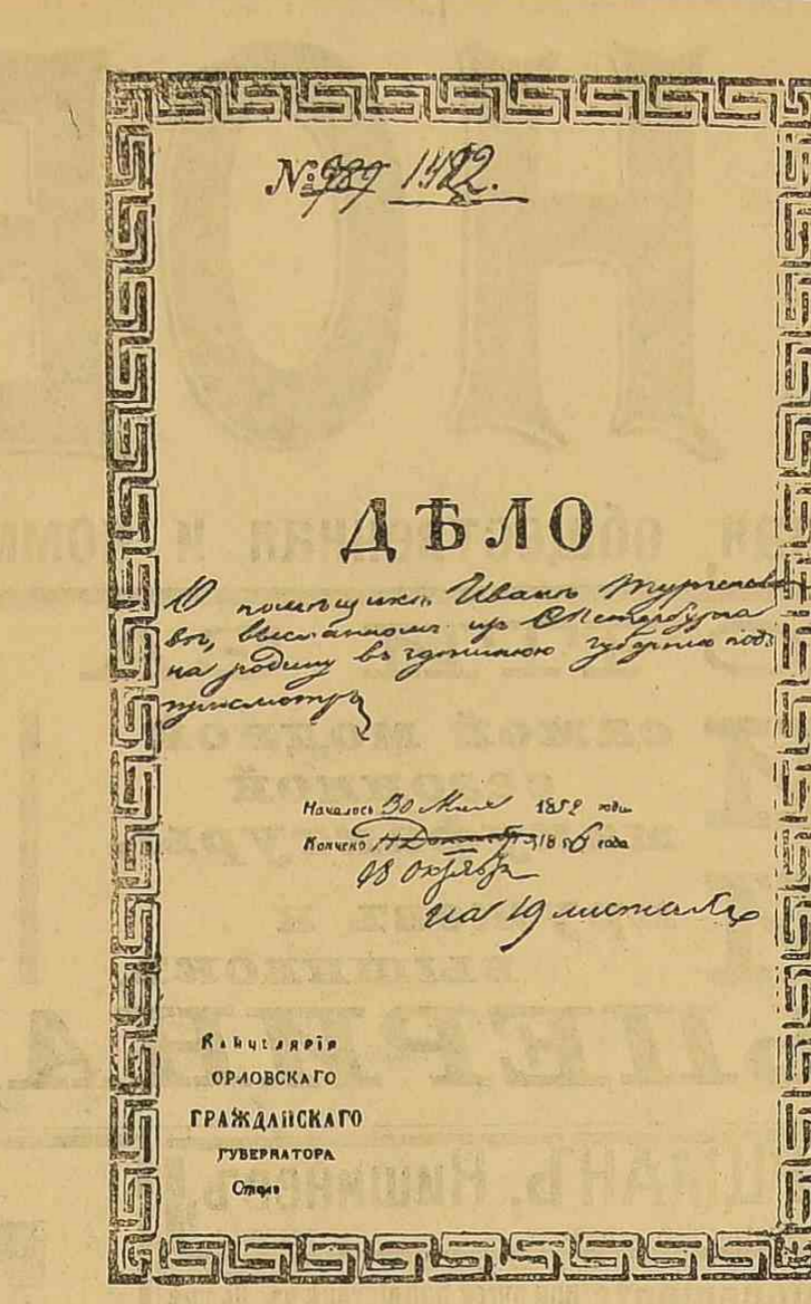 № 989 1482.
ДѢЛО
О помѣщикѣ Иванѣ Тургене
вѣ, высланномъ изъ С.Петербурга
на родину въ здѣшнюю губернію подъ
присмотръ
Началось 30 Мая 1852 года
Кончено 1856 года
18 Октября
на 19 листахъ
Канцелярія
ОРЛОВСКАГО
ГРАЖДАНСКАГО
ГУБЕРНАТОРА
Столъ